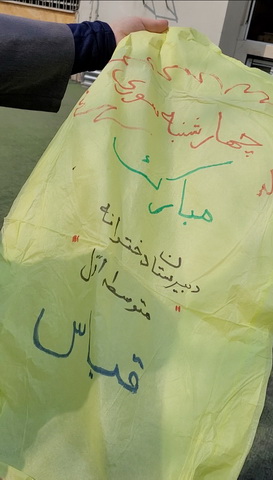 چهارشنبه سوری
مبارک
دبیرستان دخترانه
متوسطه اول
قباس